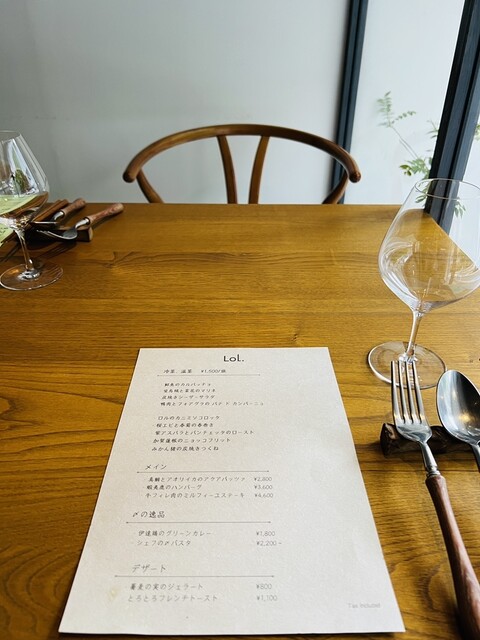 Lol.
冷菜、温菜 ¥1,000/皿
鮮魚のカルパッチョ
炙りシーザーサラダ
鴨肉とフォアグラの パテ ド カンパーニュ
ロルのカニミソコロッケ
桜エビと春菊の春巻き
紫アスパラとパンチェッタのロースト
加賀蓮根のニョッコフリット
みかん鯛の炭焼きつくね
メイン
真鯛とアオリイカのアクアパッツァ ¥2,800
のハンバーグ ¥3,600
牛フィレ肉のミルフィーユステーキ ¥4,600
〆の逸品
伊達鶏のグリーンカレー ¥1,800
シェフの〆パスタ ¥2,200~
デザート
蕎麦の実のジェラート ¥800
とろとろフレンチトースト ¥1,100
Tax included